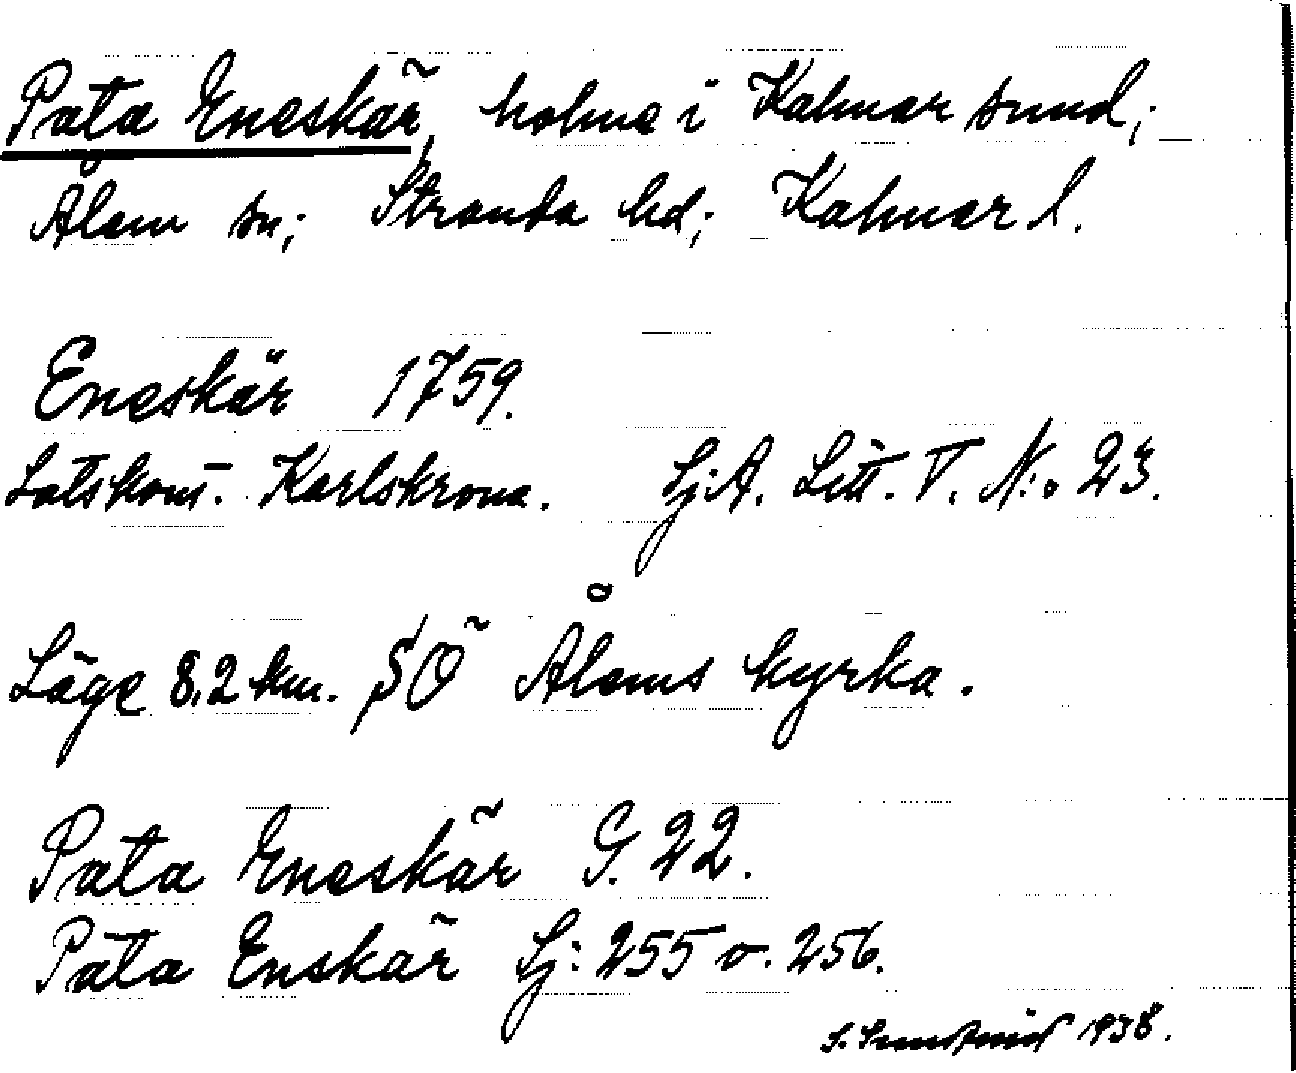 Pata Eneskär, holme i Kalmar sund;
Ålem sn; Stranda hd; Kalmar l.
Eneskär 1759.
Lotskont. Karlskrona. Sj.A. Litt. V. N:o 23.
Läge 8,2 km. SÖ Ålems kyrka.
Pata Eneskär G. 22.
Pata Enskär Sj: 255 o. 256.
S. 1938.